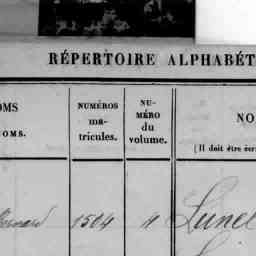 RÉPERTOIRE ALPHABÉT
OMS
OMS.
NUMÉROS
ma-
tricules.
NU-
MÉRO
du
volume.
NO
(Il doit être écri
1504
4
Lunel